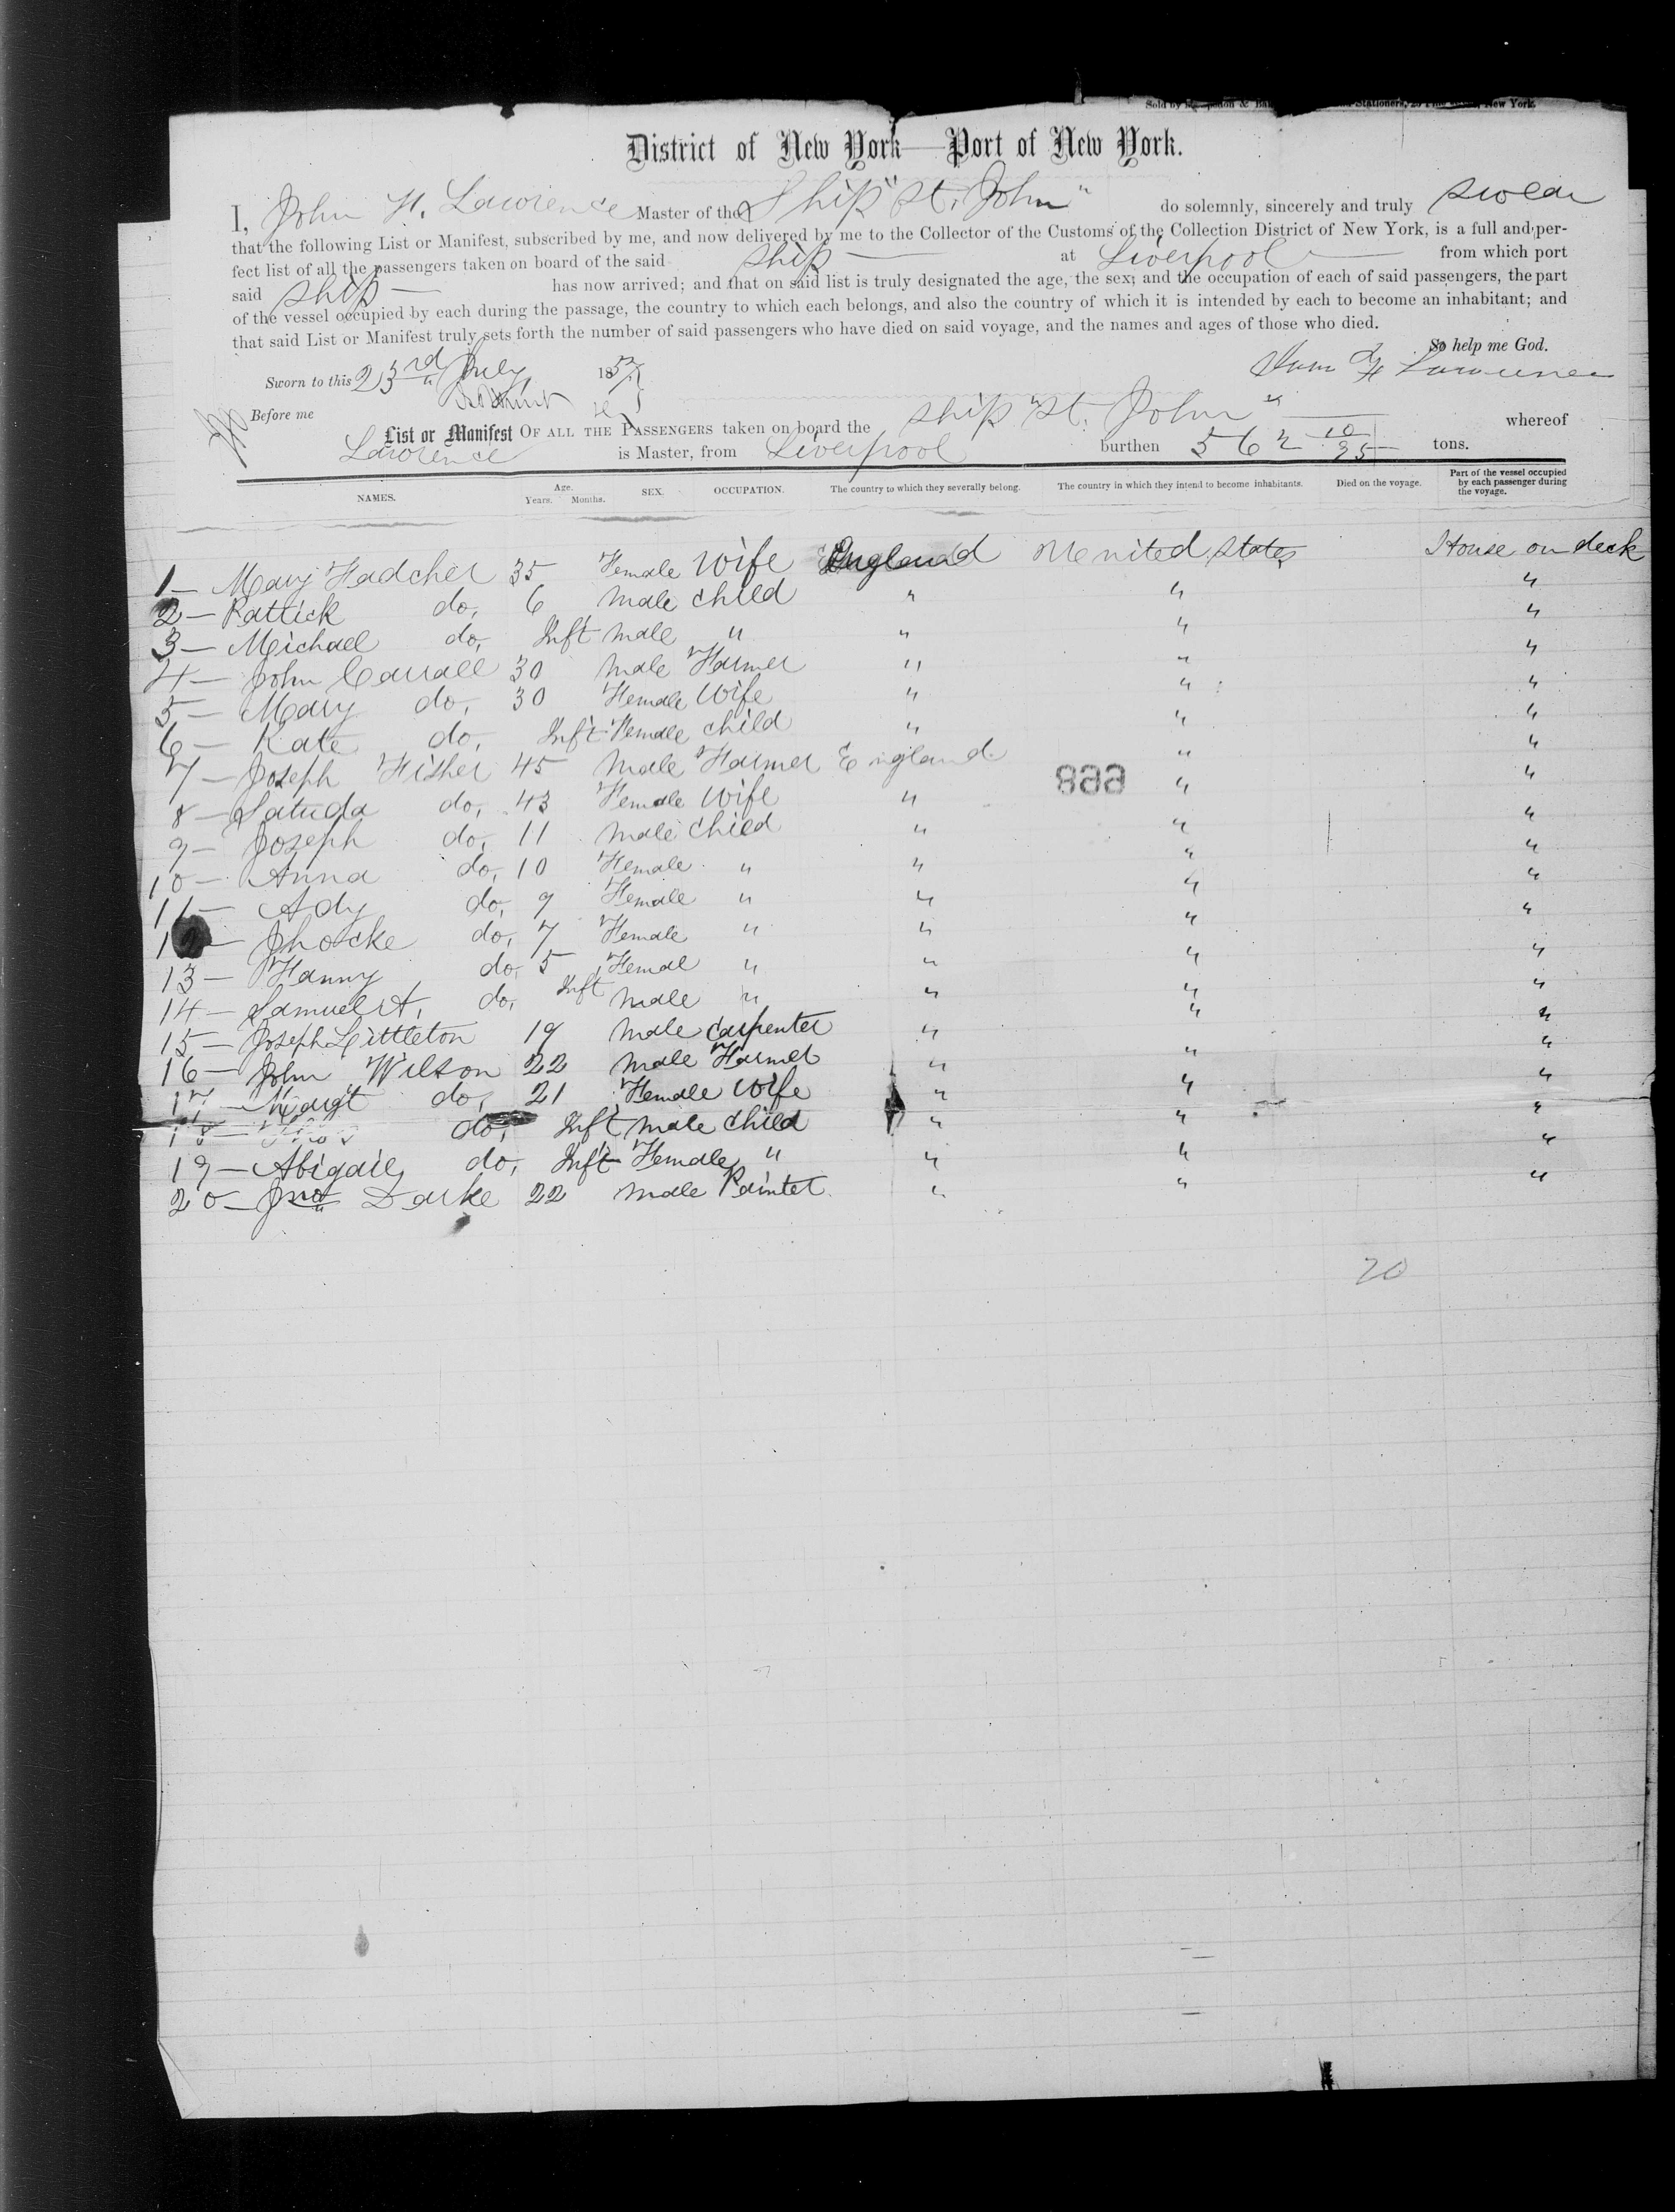 Sold by & Stationers, New York.
District of New York—Port of New York.
I, John H. Lawrence Master of the Ship "St. John" do solemnly, sincerely and truly swear
that the following List or Manifest, subscribed by me, and now delivered by me to the Collector of the Customs of the Collection District of New York, is a full and per-
fect list of all the passengers taken on board of the said ship at Liverpool from which port
said ship has now arrived; and that on said list is truly designated the age, the sex, and the occupation of each of said passengers, the part
of the vessel occupied by each during the passage, the country to which each belongs, and also the country of which it is intended by each to become an inhabitant; and
that said List or Manifest truly sets forth the number of said passengers who have died on said voyage, and the names and ages of those who died.
So help me God.
Sworn to this 23rd July 18
Before me
List or Manifest OF ALL THE PASSENGERS taken on board the ship "St. John" whereof
Lawrence is Master, from Liverpool burthen 562 tons.
NAMES. Age. Years. Months. SEX. OCCUPATION. The country to which they severally belong. The country in which they intend to become inhabitants. Died on the voyage. Part of the vessel occupied by each passenger during the voyage.
1— Mary Fadcher 35 Female Wife England United States House on deck
2— Pattick do, 6 male child " " "
3— Michael do, Inft male " " " "
4— John Carrall 30 male Farmer " " "
5— Mary do, 30 Female Wife " " "
6— Kate do, Inft Female child " " "
7— Joseph Fisher 45 male Farmer England " "
899
8— do, 43 Female Wife " " "
9— Joseph do, 11 male child " " "
10— Anna do, 10 Female " " " "
11— Ady do, 9 Female " " " "
do, 7 Female " " " "
13— Fanny do, 5 Femal " " " "
14— Samuel A, do, Inft male " " " "
15— Joseph Littleton 19 male carpenter " " "
16— John Wilson 22 male Farmer " " "
17— Margt do, 21 Female Wife " " "
18— do, Inft male child " " "
19— Abigail do, Inft Female " " " "
20— Jno Darke 22 male Painter " " "
20